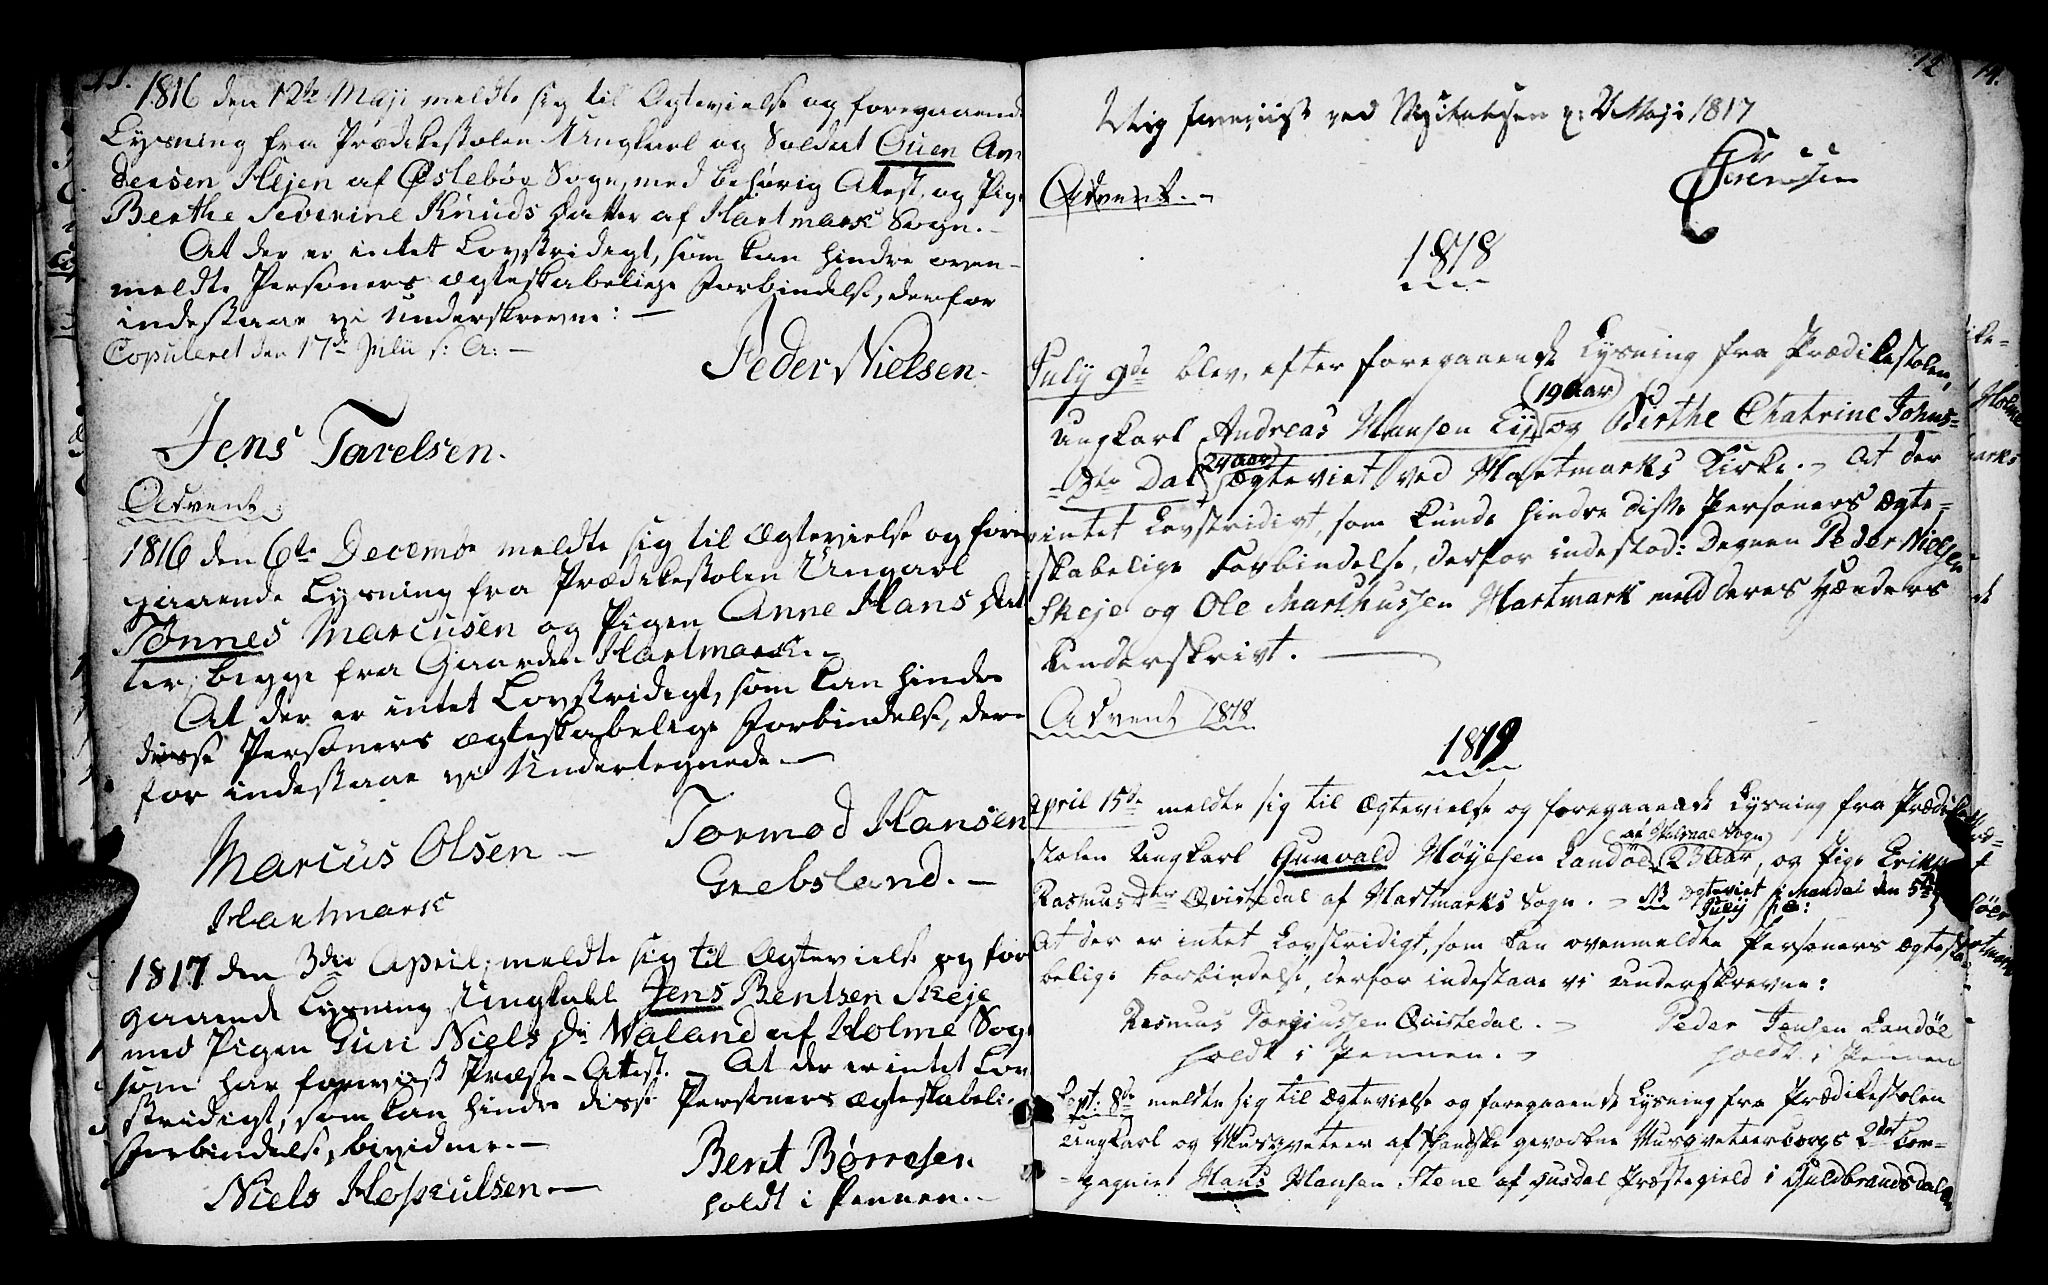 11.
1816 den 12te Maji meldte sig til Ægtevielse og foregaaende
Lysning fra Prædikestolen Ungkarl og Soldat Ouen An
densen Hejen af Øslebøe Sogn, med behørig Atest, og Pige
Berthe Severine Knuds Datter af Hartmark Sogn. -
At der er intet Lovstridigt, som kan hindre oven-
meldte Personers Ægteskabelige Forbindelse, derfor
indestaae vi Underskrevne: —
Copuleret den 17de Julii s: A: -
Peder Nielsen -
Jens Tarelsen.
Advent.
1816 den 6te Decembr meldte sig til Ægtevielse og fore
gaaende Lysning fra Prædikestolen Ungkarl
Tønnes Marcusen og Pigen Anne Hans Dat
ter, begge fra Gaarden Hartmark. -
At der er intet Lovstridigt, som kan hindre
disse Personers Ægteskabelige Forbindelse, der-
for indestaae vi Undertegnede —
Marcus Olsen —
Hartmark
Tormod Hansen
Grebsland. —
1817 den 3die April, meldte sig til Ægtevielse og for
gaaende Lysning Ungkarl Jens Bentsen Skeje
med Pigen Guri Niels Dr Waland af Holme Sogn
som har foreviist Præste-Attest. — At der er intet Lov
stridigt, som kan hindre disse Personers Ægteskabeli-
Forbindelse, bevidne. —
Niels Aspeulsen —
Bent Børresen
holdt i Pennen. —
12
Mig foreviist ved Visitatsen d: 2 Maji 1817
Sørensen
Advent. -
1818
July 9de blev, efter foregaaende Lysning fra Prædikestolen,
Ungkarl Andreas Hansen Eig (19 Aar) og Birthe Chatrine Johns-
-Dtr Dal (24 aar) ægteviet ved Hartmarks Kirke. - At der
intet Lovstridigt, som kunde hindre disse Personers Ægte-
skabelige Forbindelse, derfor indestod: Degnen Peder Nielsen
Skeje og Ole Marthussen Hartmark med deres Hænders
Underskrivt. —
Advent 1818
1819
April 15de meldte sig til Ægtevielse og foregaaende Lysning fra Prædike
stolen Ungkarl Gunvald Høyesen Landøe af Halsaae Sogn (23 Aar), og Pige
Rasmus Dtr Qvistedal af Hartmarks Sogn. - NB ægteviet i Mandal den 5te
July
At der er intet Lovstridigt, som kan ovenmeldte Personers Ægteska
belige Forbindelse, derfor indestaae vi Underskrevne:
Rasmus Torgiussen Qvistedal. -
holdt i Pennen. -
Peder Jensen Landøe
holdt i Pennen
Sept: 8de meldte sig til Ægtevielse og foregaaende Lysning fra Prædikestolen
Ungkarl og Musqveteer af norske gevorbne Musqveteercorps 2det Com-
-pagnie Hans Hansen Stene af Gusdal Præstegield i Guldbrandsdalen